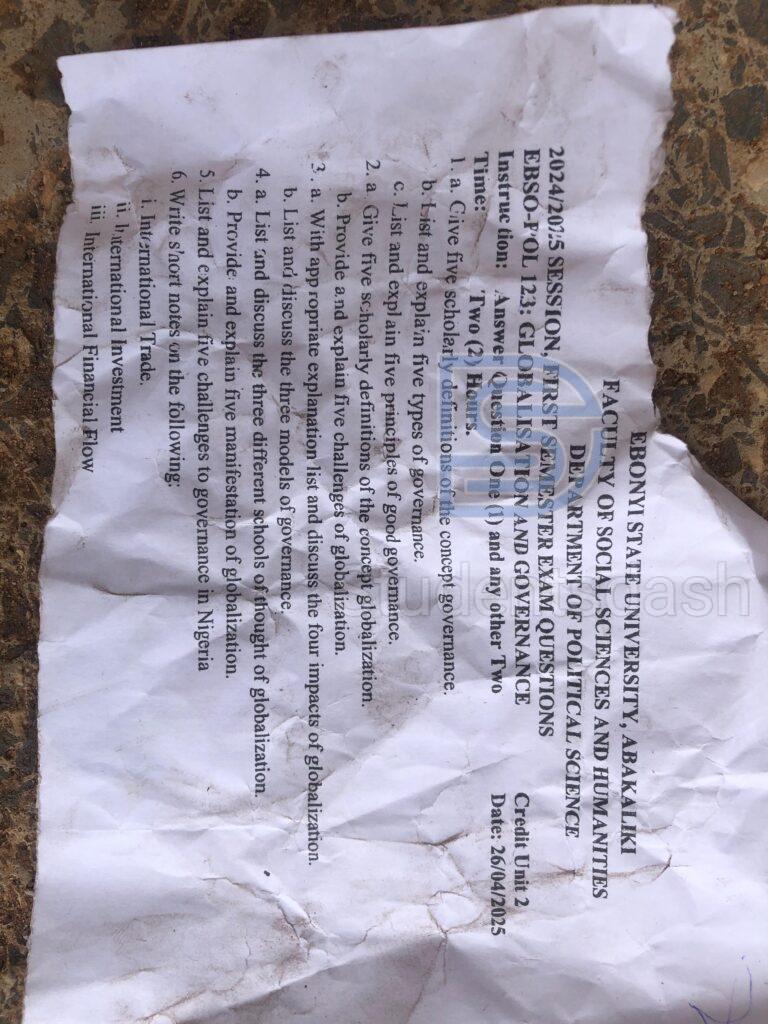 EBONYI STATE UNIVERSITY, ABAKALIKI
FACULTY OF SOCIAL SCIENCES AND HUMANITIES
DEPARTMENT OF POLITICAL SCIENCE
2024/2025 SESSION, FIRST SEMESTER EXAM QUESTIONS
EBSO-POL 123: GLOBALISATION AND GOVERNANCE Credit Unit 2
Instruction: Answer Question One (1) and any other Two Date: 26/04/2025
Time: Two (2) Hours.
1. a. Give five scholarly definitions of the concept governance.
b. List and explain five types of governance.
c. List and explain five principles of good governance.
2. a Give five scholarly definitions of the concept globalization.
b. Provide and explain five challenges of globalization.
3. a. With appropriate explanation list and discuss the four impacts of globalization.
b. List and discuss the three models of governance.
4. a. List and discuss the three different schools of thought of globalization.
b. Provide and explain five manifestation of globalization.
5. List and explain five challenges to governance in Nigeria
6. Write short notes on the following:
i. International Trade.
ii. International Investment
iii. International Financial Flow